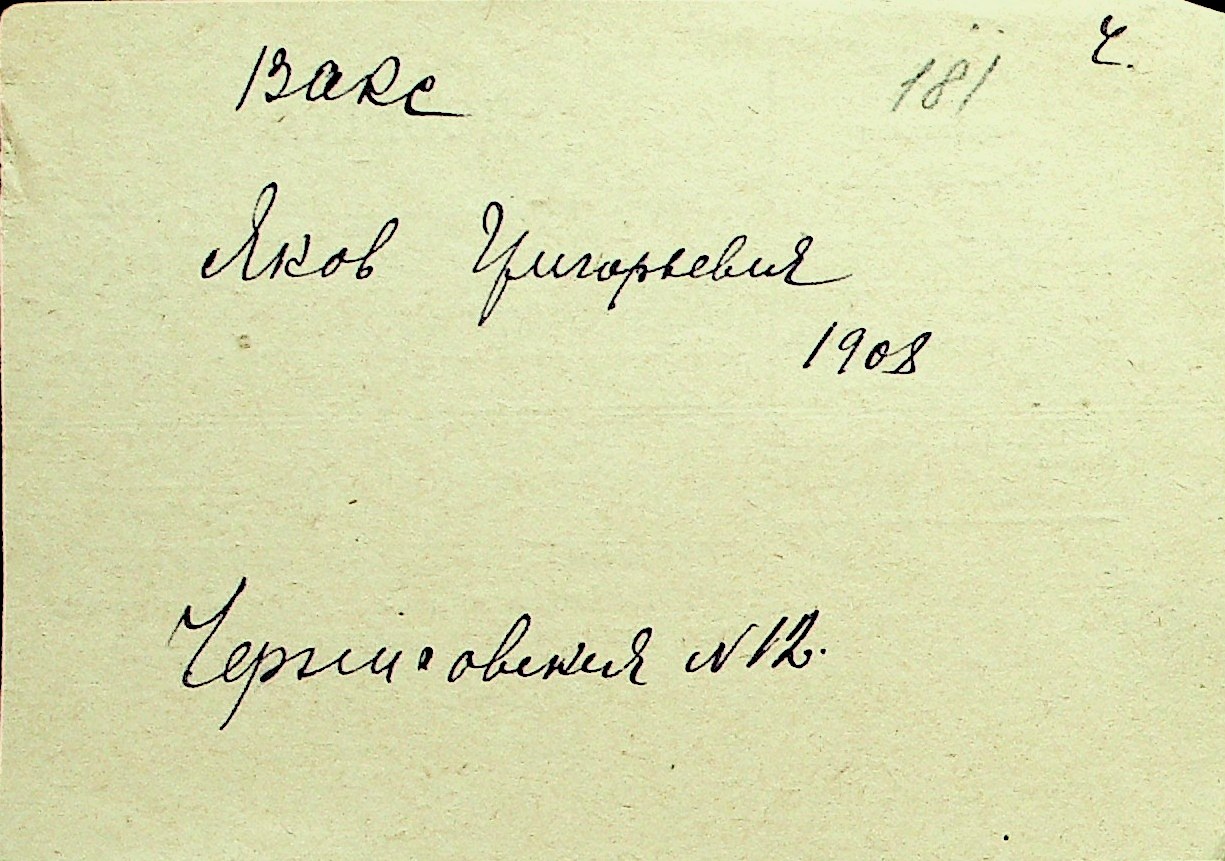 Вакс 181 Ч.
Яков Григорьевич
1908
Черниговская N 12.